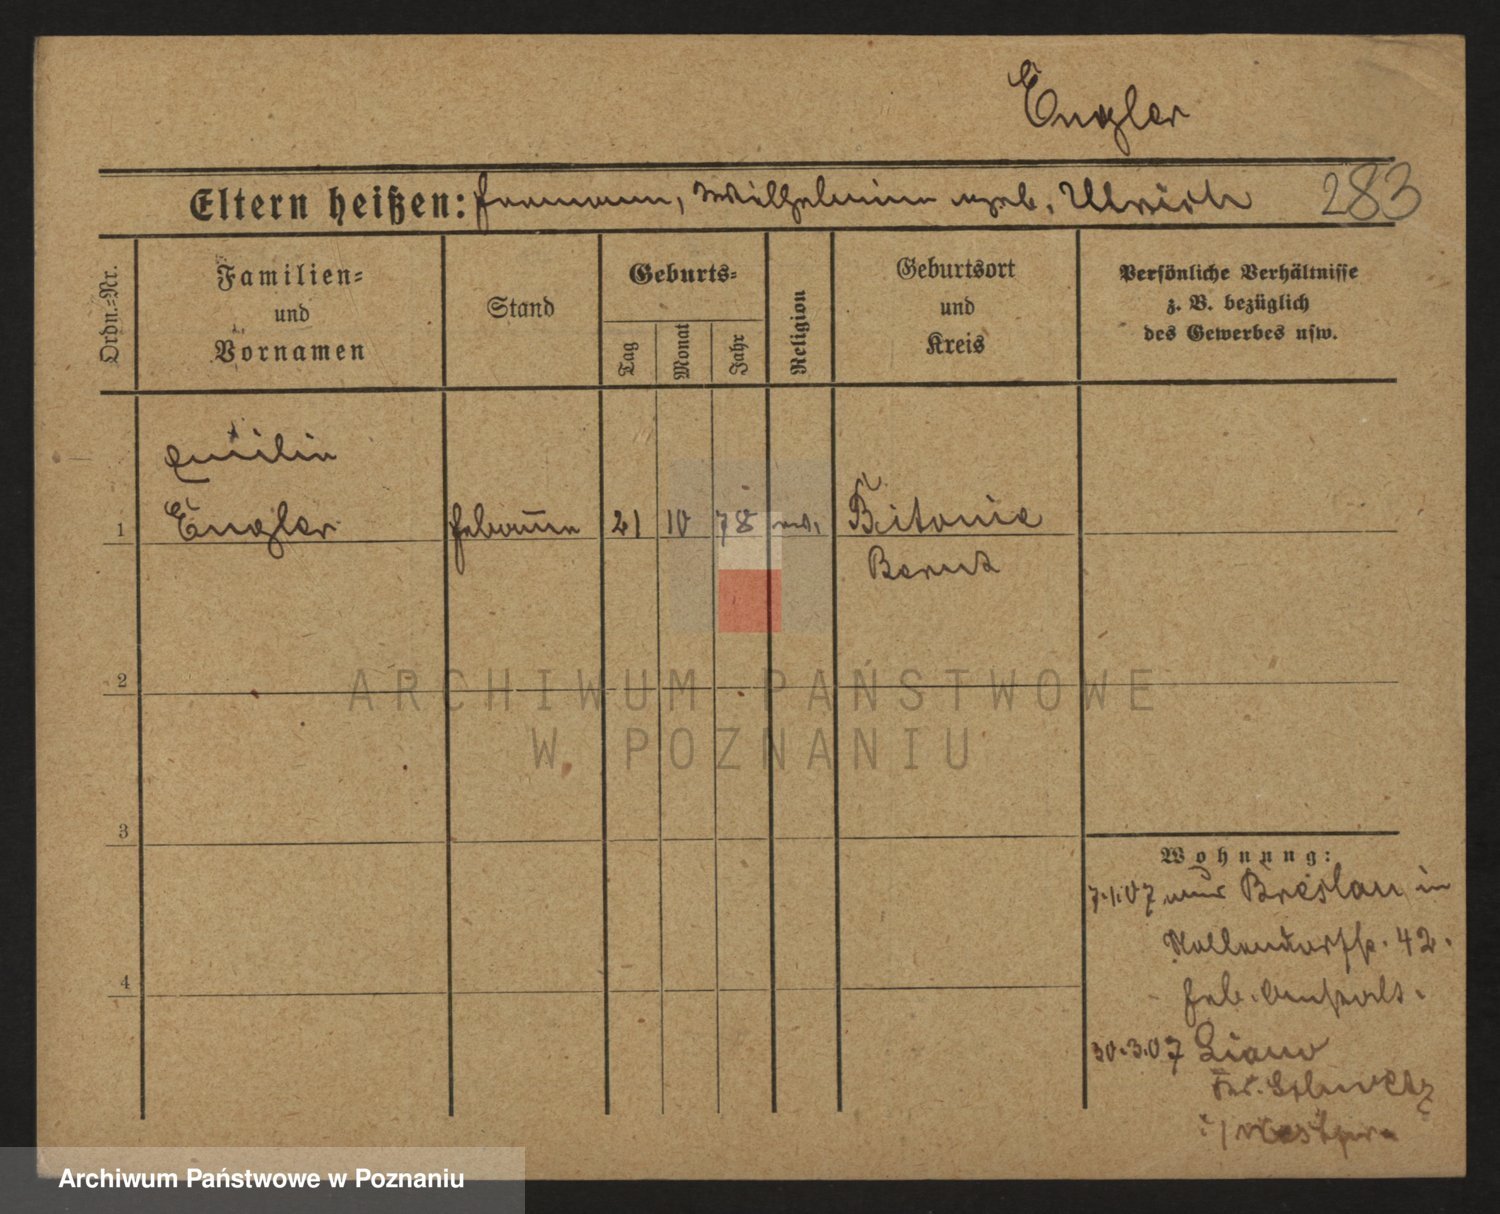 Engler
Eltern heißen: Hermann, Wilhelmine geb. Ulrich 283
Ordn.-Nr.
Familien-
und
Vornamen
Stand
Geburts-
Tag
Monat
Jahr
Religion
Geburtsort
und
Kreis
Persönliche Verhältnisse
z. B. bezüglich
des Gewerbes usw.
Emilie
1 Engler Hebamme 21 10 78 ev. Bitonia
Berent
2
ARCHIWUM PAŃSTWOWE
W POZNANIU
3
4
Wohnung:
7.1.07 aus Breslau in
42.
Heb.
30.3.07
Archiwum Państwowe w Poznaniu